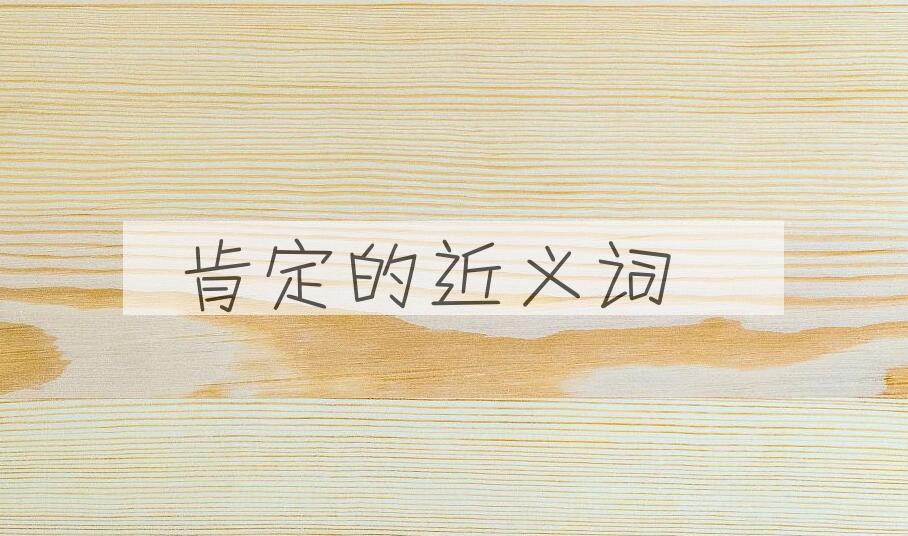 肯定的近义词